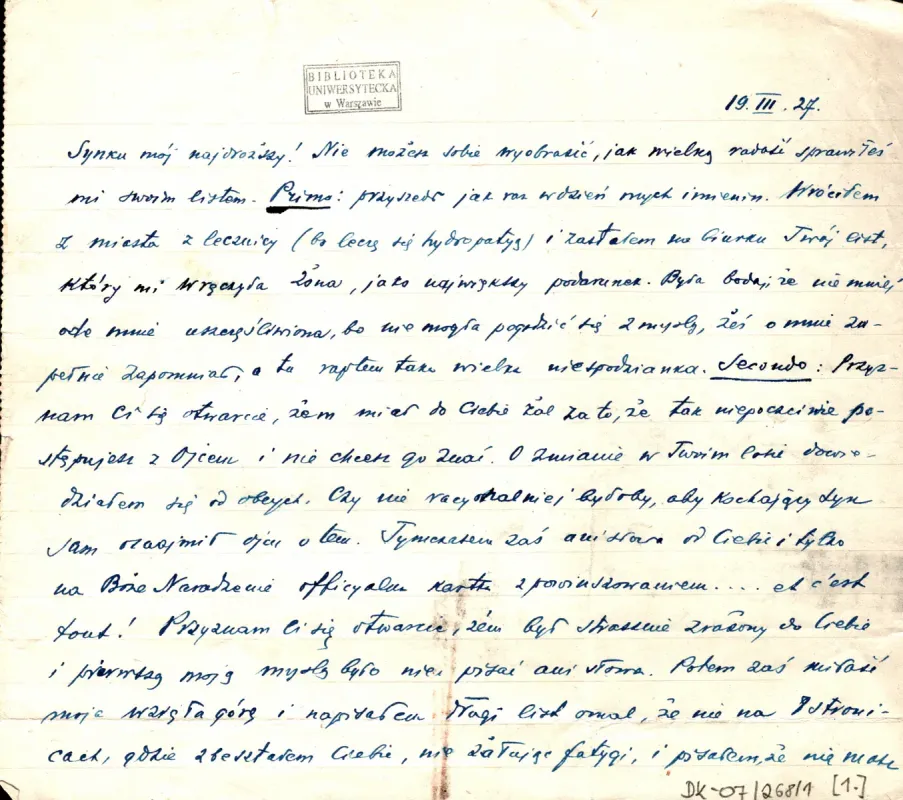 BIBLIOTEKA
UNIWERSYTECKA
w Warszawie
19.III.27.
Synku mój najdroższy! Nie możesz sobie wyobrazić, jak wielką radość sprawiłeś
mi swoim listem. Primo: przyszedł jak raz w dzień mych imienin. Wróciłem
z miasta z lecznicy (bo leczę się hydropatyą) i zastałem na biurku Twój list,
który mi wręczyła Żona, jako największy podarunek. Była bodaj, że nie mniej
ode mnie uszczęśliwiona, bo nie mogła pogodzić się z myślą, żeś o mnie zu-
pełnie zapomniał, a tu raptem taka wielka niespodzianka. Secondo: Przyz-
nam Ci się otwarcie, żem miał do Ciebie żal za to, że tak niepoczciwie po-
stępujesz z Ojcem i nie chcesz go znać. O zmianie w Twoim losie dowie-
działem się od obcych. Czy nie racyonalniej byłoby, aby kochający syn
sam oznajmił ojcu o tem. Tymczasem zaś ani słowa od Ciebie i tylko
na Boże Narodzenie officyalna kartka z powinszowaniem.... et c'est
tout! Przyznam Ci się otwarcie, żem był strasznie zrażony do Ciebie
i pierwszą moją myślą było nie pisać ani słowa. Potem zaś miłość
moja wzięła górę i napisałem długi list omal, że nie na 8 stroni-
cach, gdzie zbeształem Ciebie, nie żałując fatygi, i pisałem, że nie masz
DK-07/268/1 [1.]